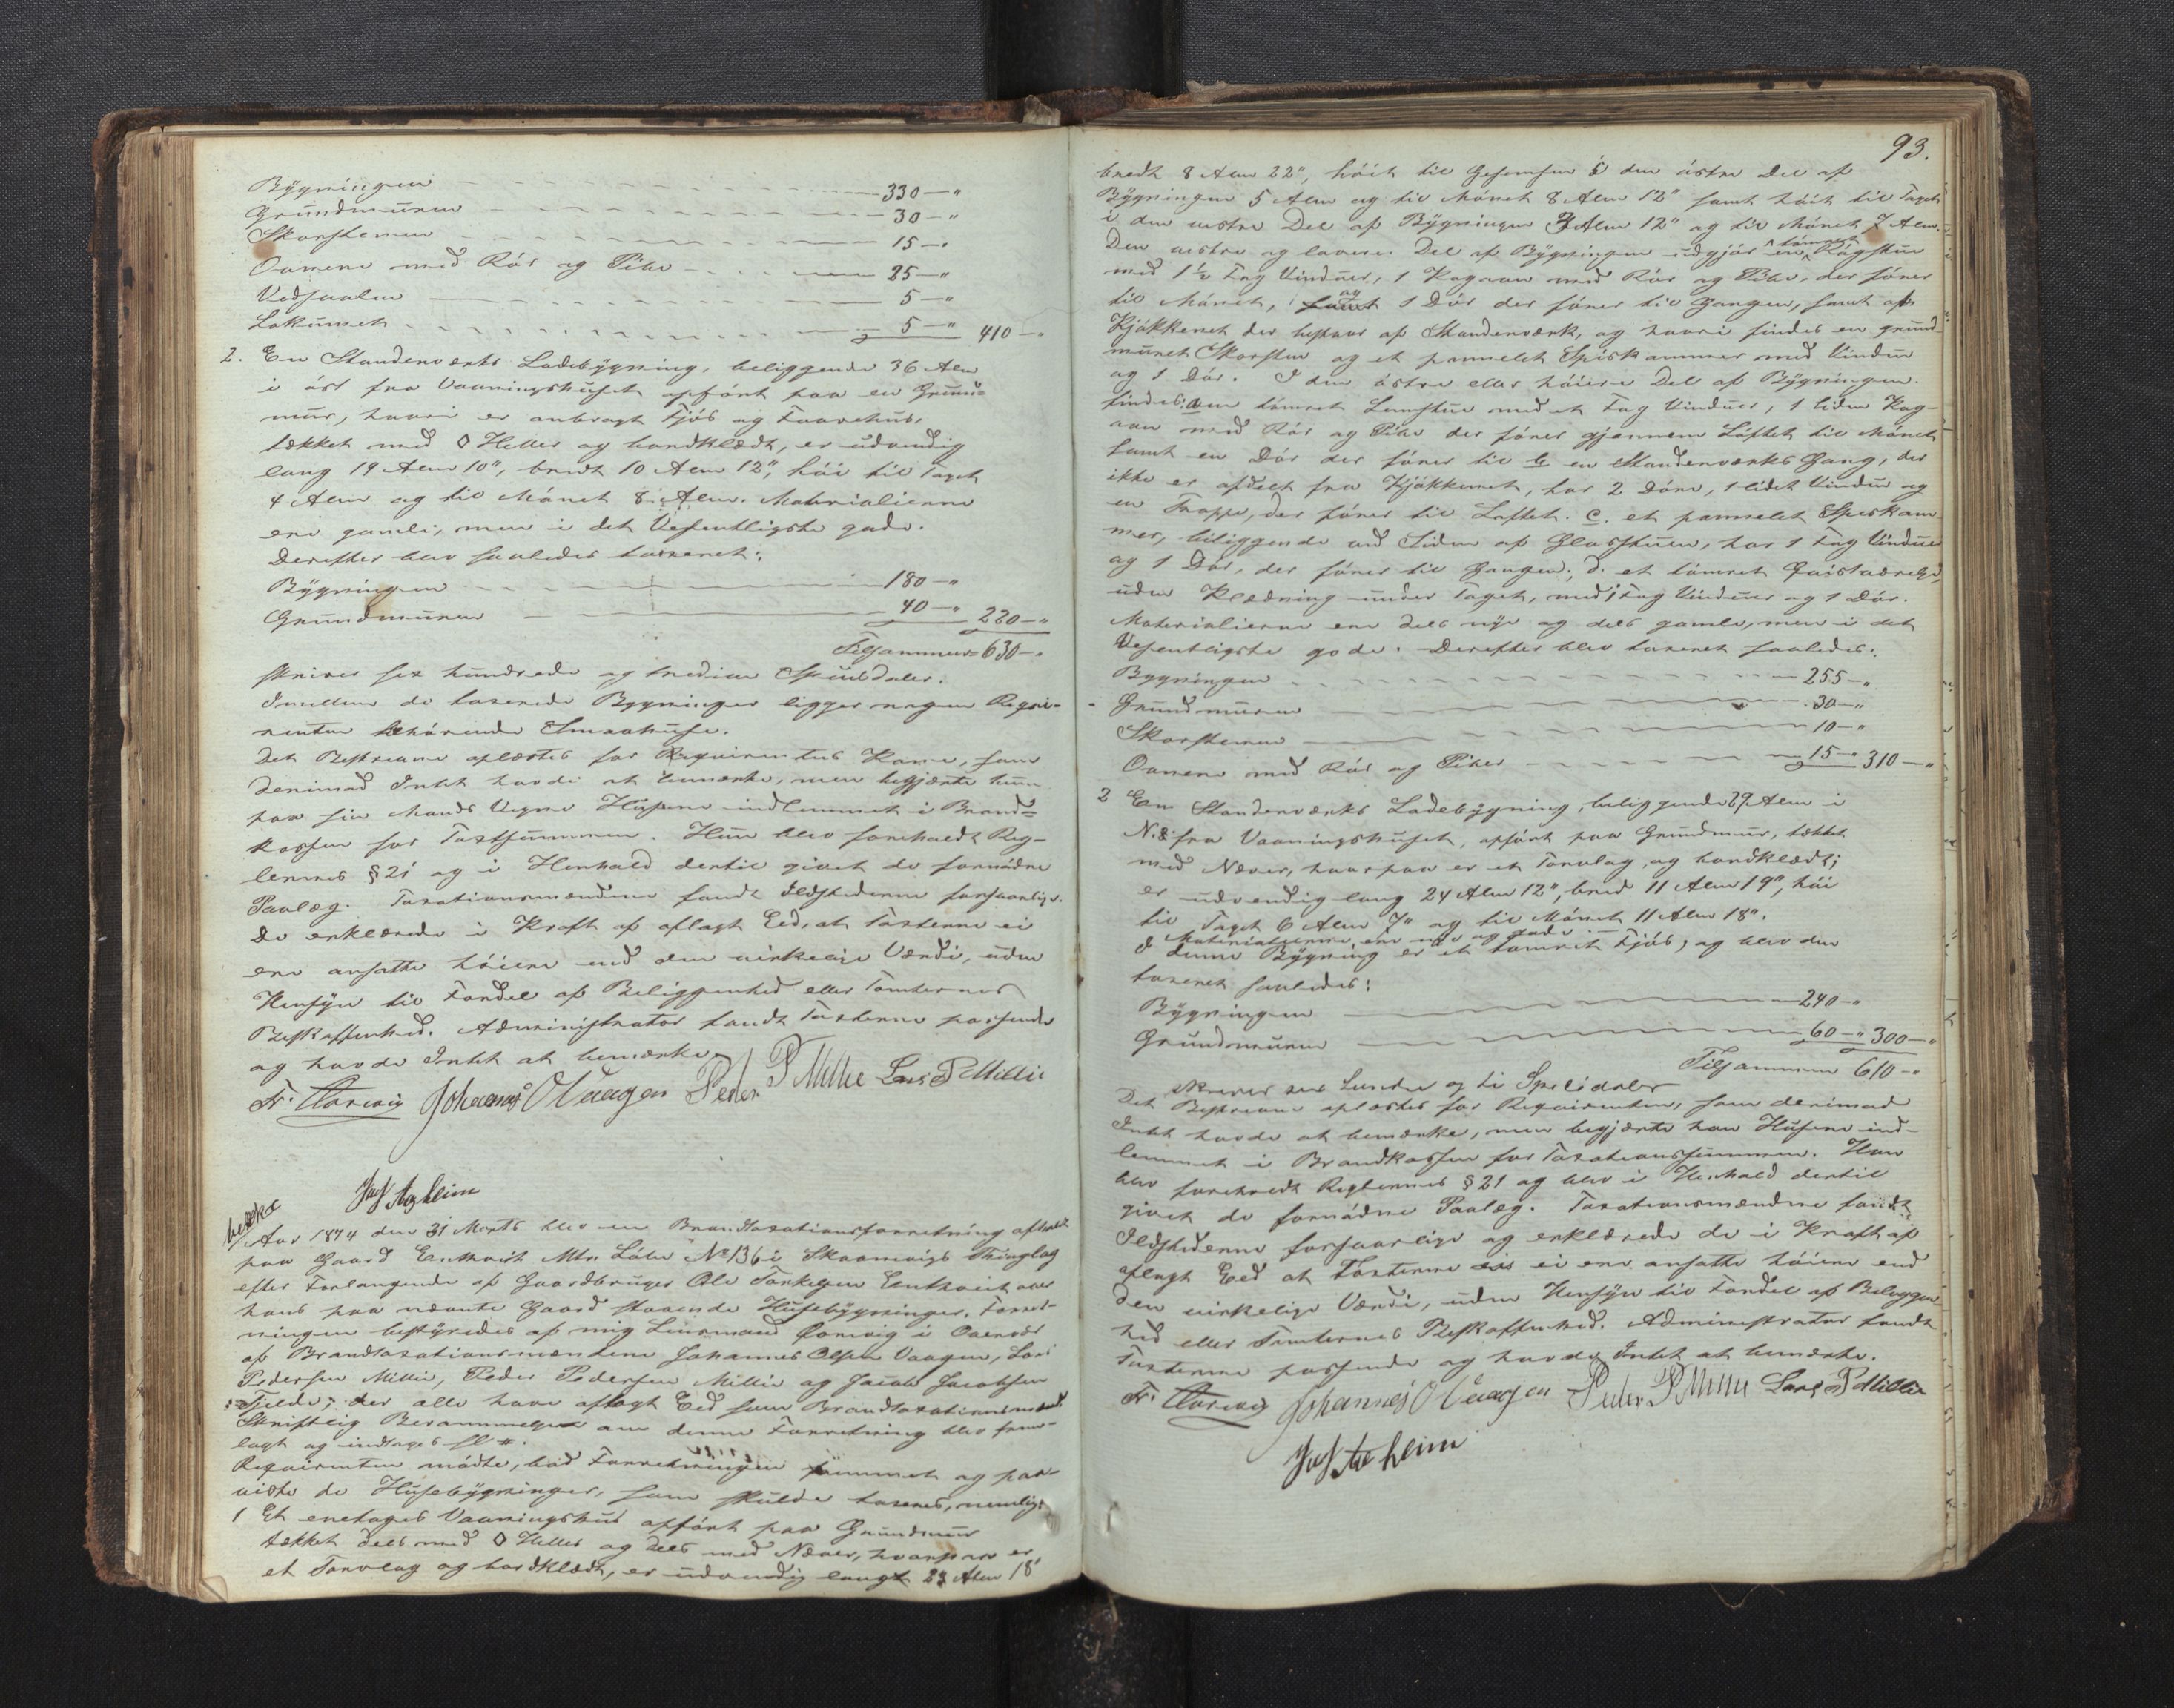 Bygningen 330 - "
Grundmuren 30 - "
Skorstenen 15 - "
Ovnene med Rør og Piber 25 - "
Vedskaalen 5 - "
Lokummet 5 - " 410 - "
2. En Standerværks Ladebygning, beliggende 36 Alen
i øst fra Vaaningshuset opført paa en Grund=
mur, hvori er anbragt Fjøs og Faarehus,
tækket med Heller og bordklædt, er udvendig
lang 19 Alen 10", bredt 10 Alen 12", høi til Taget
4 Alen og til Mønet 8 Alen. Materialierne
ere gamle, men i det Væsentligste gode.
Derefter blev saaledes taxeret:
Bygningen 180 - "
Grundmuren 40 - " 220 - "
Tilsammen 630 - "
skriver sex hundrede og tredive Speciedaler.
Imellem de taxerede Bygninger ligger nogen Reqvi=
renten tilhørende Smaahuse.
Det Beskrevne oplæstes for Reqvirentens Kone, som
derimod Intet havde at bemærke, men begjærte hun
paa sin Mands Vegne Husene indlemmet i Brand=
kassen for Taxtsummen. Hun blev foreholdt Reg=
lernes § 21 og i Henhold dertil givet de fornødne
Paalæg. Taxationsmændene fandt Ildstederne forsvarlige.
De erklærede i Kraft af aflagt Eed, at Taxterne ei
ere ansatte høiere end den virkelige Værdi, uden
Hensyn til Fordel af Beliggenhed eller Tomternes
Beskaffenhed. Administrator fandt Taxterne passende
og havde Intet at bemærke.
Fr. Johannes O Vaagen Peder P Millie Lars P Millie
Aar 1874 den 31 Marts blev en Brandtaxationsforretning afholdt
paa Gaard Entveit Mtr. Løbe No 136 i Skaanevigs Thinglag
efter Forlangende af Gaardbruger Ole Torkelsen Entveit over
hans paa nævnte Gaard staaende Husebygninger. Forret=
ningen bestyredes af mig Lensmand i Overvær
af Brandtaxationsmændene Johannes Olsen Vaagen, Lars
Pedersen Millie, Peder Pedersen Millie og Jacob Jacobsen
der alle have aflagt Eed som Brandtaxationsmænd.
Skriftlig Berammelse om denne Forretning blev frem=
lagt og indtages
Reqvirenten mødte, bad Forretningen fremmet og paa=
viste de Husebygninger, som skulde taxeres, nemlig:
1 Et enetages Vaaningshus opført paa Grundmur
tækket dels med Heller og dels med Næver, hvorpaa er
et Torvlag og bordklædt, er udvendig langt 23 Alen 18"
93.
bredt 8 Alen 22", høit til Gesemsen i den østre Del af
Bygningen 5 Alen og til Mønet 8 Alen 12" samt høit til Taget
i den vestre Del af Bygningen 3 Alen 12" og til Mønet 7 Alen.
Den vestre og lavere Del af Bygningen udgjør en tømret Røgstue
med 1½ Fag Vinduer, 1 Kogeovn med Rør og Pibe, der fører
til Mønet, og 1 Dør der fører til Gangen, samt af
Kjøkkenet der bestaar af Standerværk, og hvori findes en grund=
muret Skorsten og et pannelet Spiskammer med Vindue
og 1 Dør. I den østre eller høiere Del af Bygningen
findes: a en tømret Lemstue med et Fag Vinduer, 1 liden Kog=
ovn med Rør og Pibe der fører gjennem Loftet til Mønet
samt en Dør der fører til b en Standerværks Gang, der
ikke er afdelt fra Kjøkkenet, har 2 Døre, 1 lidet Vindue og
en Trappe, der fører til Loftet. c. et pannelet Spiskam=
mer, beliggende ved Siden af Glasstuen, har 1 Fag Vindue
og 1 Dør, der fører til Gangen; d. et tømret Qvistværelse
uden Klædning under Taget, med 1 Fag Vinduer og 1 Dør.
Materialierne ere dels nye og dels gamle, men i det
Væsentligste gode. Derefter blev taxeret saaledes:
Bygningen 255 - "
Grundmuren 30 - "
Skorstenen 10 - "
Ovnene med Rør og Piber 15 - " 310 - "
2 En Standerværks Ladebygning, beliggende 29 Alen i
N.Ø. fra Vaaningshuset, opført paa Grundmur, tækket
med Næver, hvorpaa er et Torvlag, og bordklædt;
er udvendig lang 24 Alen 12", bred 11 Alen 19", høi
til Taget 6 Alen 7" og til Mønet 11 Alen 18".
Materialierne ere nye og gode
I denne Bygning er et tømret Fjøs, og blev den
taxeret saaledes:
Bygningen 240 - "
Grundmuren 60 - " 300 - "
Tilsammen 610 - "
skriver sex hundre og ti Speciedaler
Det Beskrevne oplæstes for Reqvirenten, som derimod
Intet havde at bemærke, men begjærte han Husene ind=
lemmet i Brandkassen for Taxationssummen. Han
blev foreholdt Reglernes § 21 og blev i Henhold dertil
givet de fornødne Paalæg. Taxationsmændene fandt
Ildstederne forsvarlige og erklærede de i Kraft af
aflagt Eed at Taxterne ei ere ansatte høiere end
den virkelige Værdi, uden Hensyn til Fordel af Beliggen=
hed eller Tomternes Beskaffenhed. Administrator fandt
Taxterne passende og havde Intet at bemærke.
Fr. Johannes O Vaagen Peder P Millie Lars P Millie